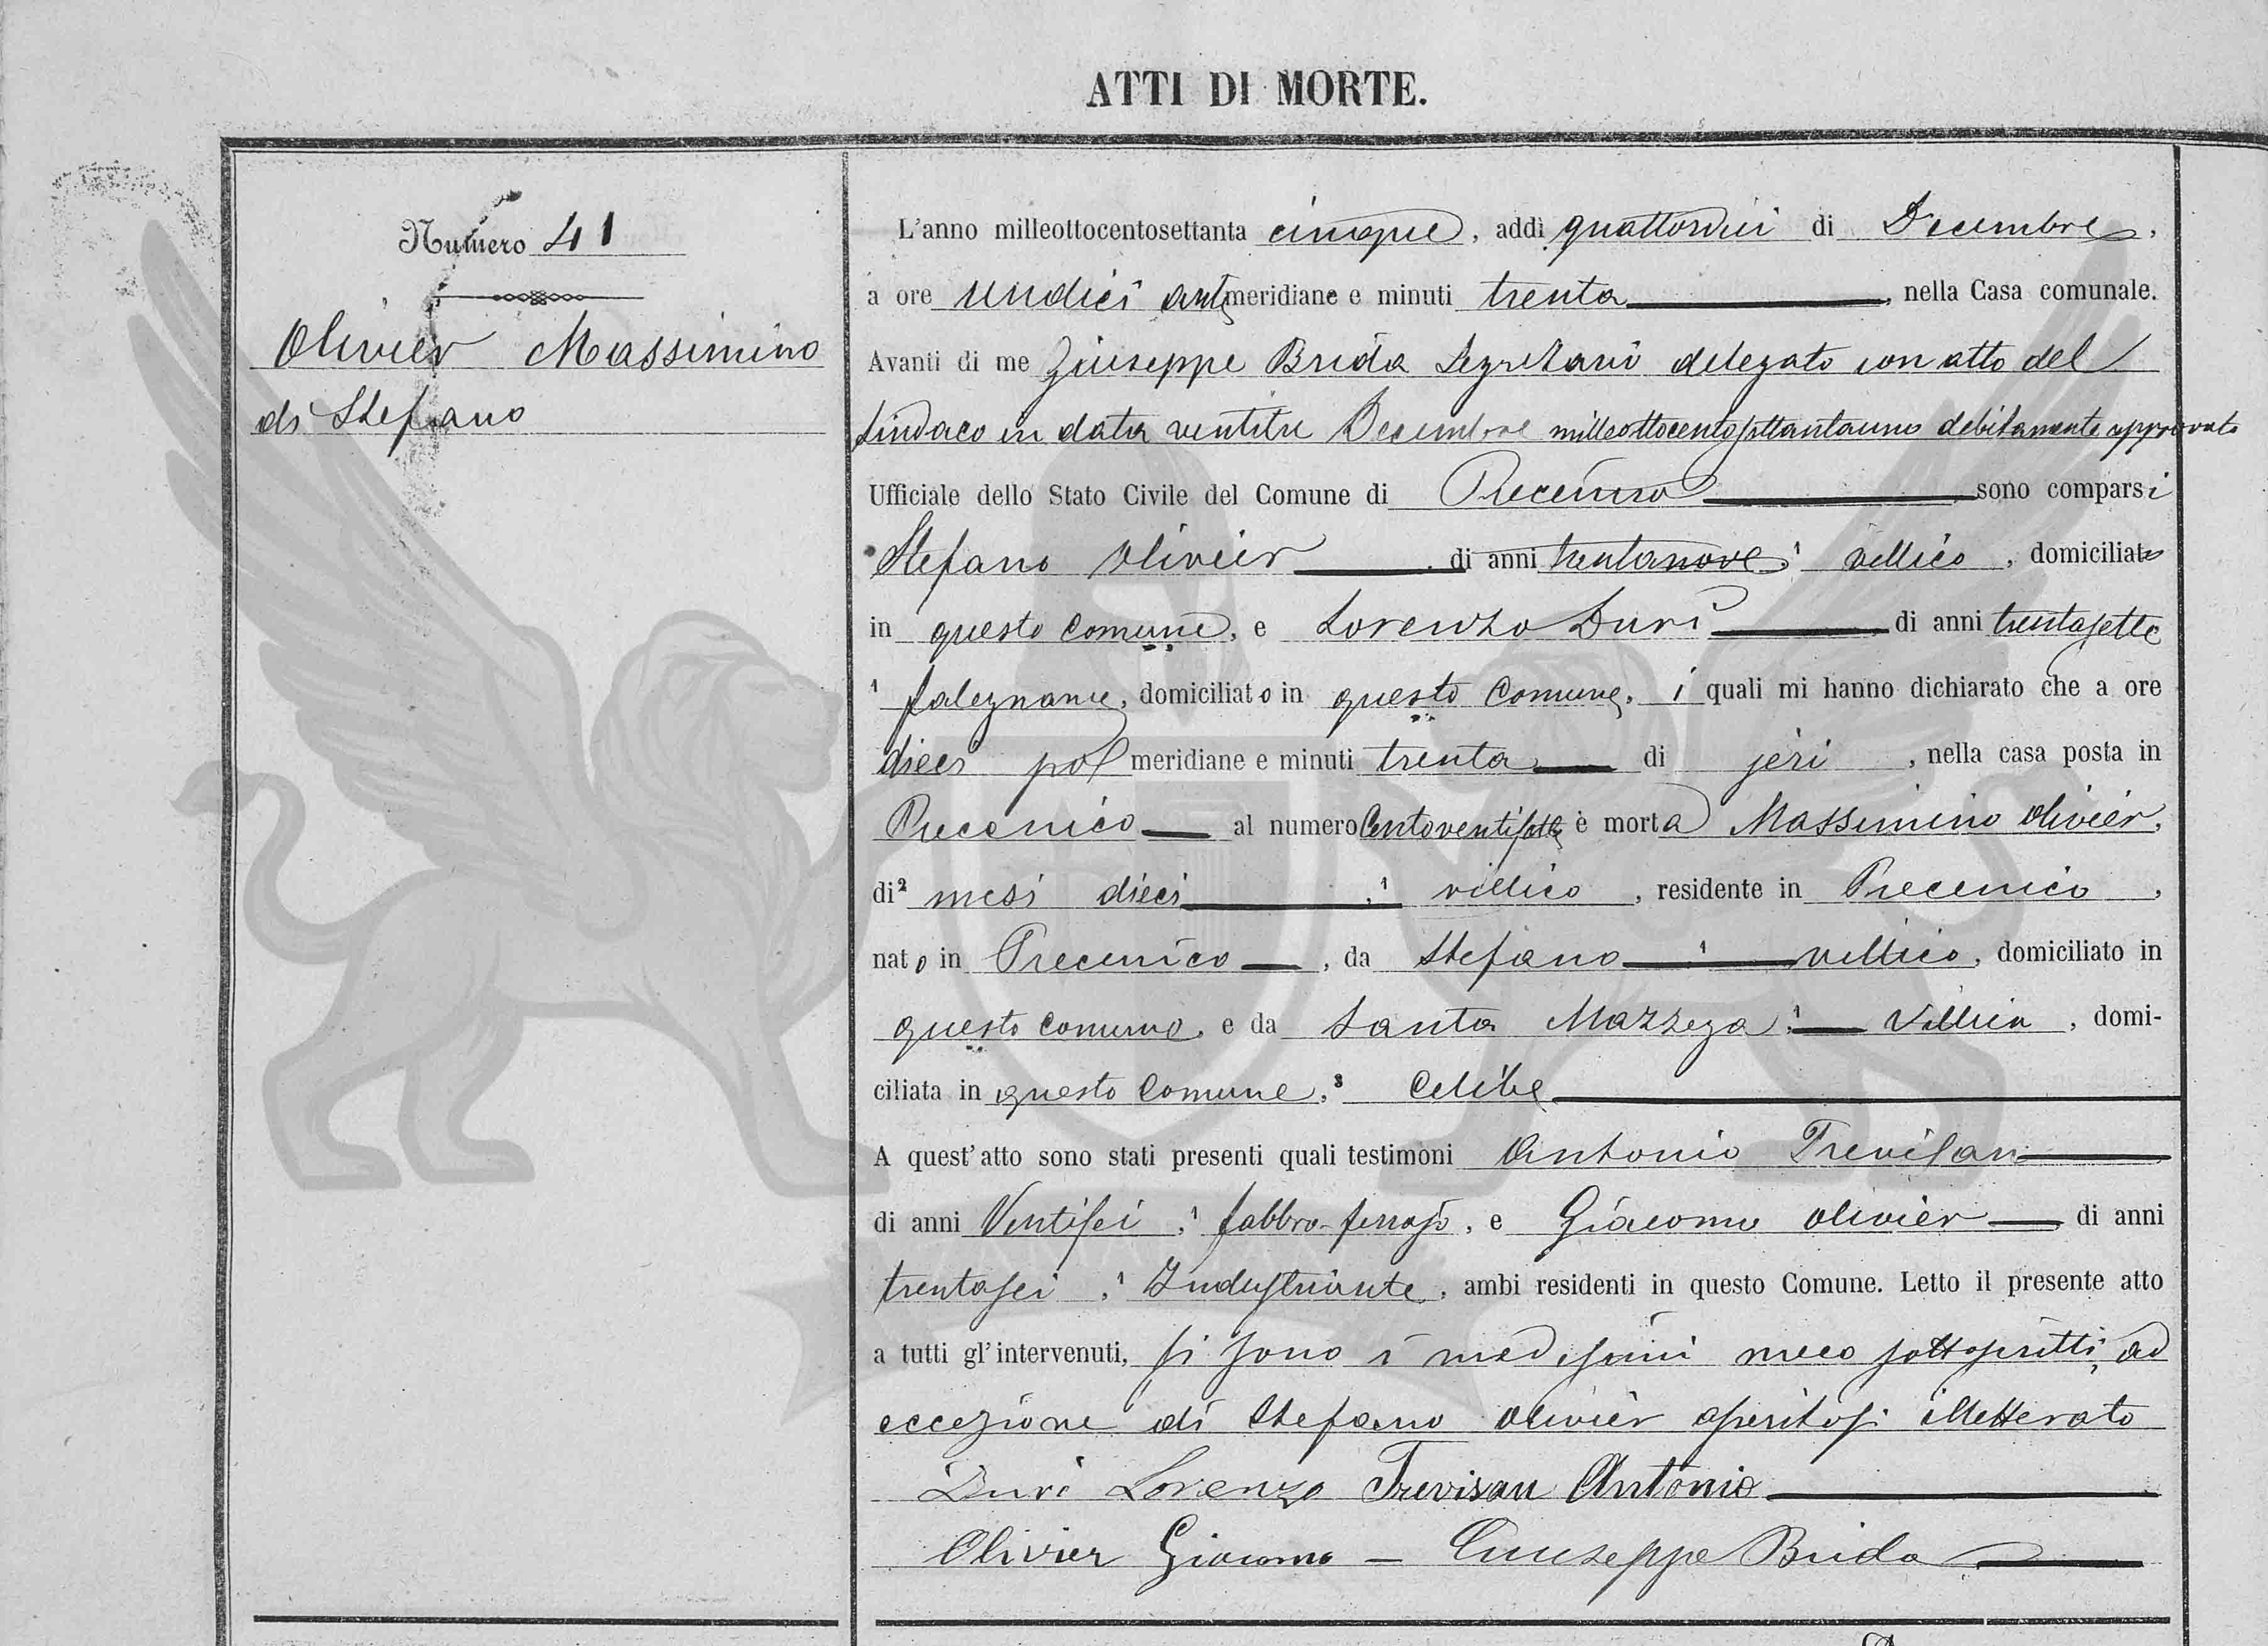 ATTI DI MORTE.
Numero 41
Olivier Massimino
di Stefano
L'anno milleottocentosettanta cinque, addì quattordici di Decembre,
a ore undici antimeridiane e minuti trenta, nella Casa comunale.
Avanti di me Giuseppe Brida Segretario delegato con atto del
Sindaco in data ventitre Decembre milleottocentosettantauno debitamente approvato
Ufficiale dello Stato Civile del Comune di Precenico sono comparsi
Stefano Olivier di anni trentanove, ¹ villico, domiciliato
in questo Comune, e Lorenzo Durì di anni trentasette
¹ falegname, domiciliato in questo Comune, i quali mi hanno dichiarato che a ore
dieci pol meridiane e minuti trenta di jeri, nella casa posta in
Precenico al numero Centoventisette è morta Massimino Olivier,
di² mesi dieci, ¹ villico, residente in Precenico,
nato in Precenico, da Stefano ¹ villico, domiciliato in
questo Comune, e da Santa Mazzega, ¹ Villica, domi-
ciliata in questo Comune, ³ Celibe
A quest'atto sono stati presenti quali testimoni Antonio Trevisan
di anni Ventisei, ¹ fabbro-ferrajo, e Giacomo Olivier di anni
trentasei, ¹ Industriante, ambi residenti in questo Comune. Letto il presente atto
a tutti gl'intervenuti, si sono i medesimi meco sottoscritti, ad
eccezione di Stefano Olivier illetterato
Durì Lorenzo Trevisan Antonio
Olivier Giacomo – Giuseppe Brida